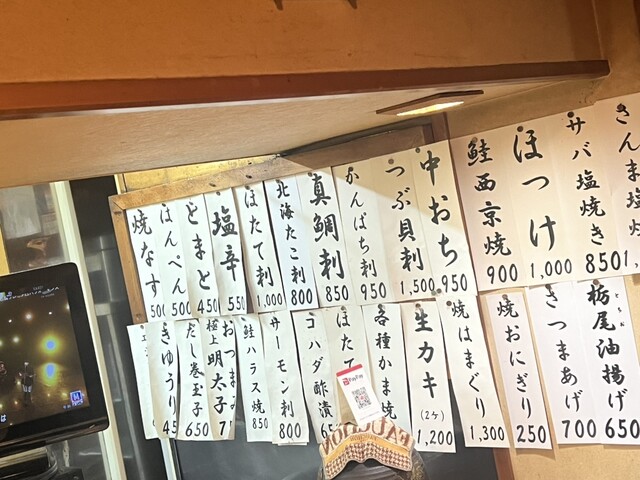 きんま塩
サバ塩焼き 850
ほっけ 1,000
鮭西京焼 900
中おち 950
つぶ貝刺 1,500
かんぱち刺 950
真鯛刺 850
北海たこ刺 800
ほたて刺 1,000
塩辛 550
とまと 450
はんぺん 500
焼なす 500
栃尾油揚げ 650
とちお
さつまあげ 700
焼おにぎり 250
焼はまぐり 1,300
生カキ (2ヶ) 1,200
各種かま焼
ほたて
コハダ酢漬 65
サーモン刺 800
鮭ハラス焼 850
おつまみ 7
極上明太子
だし巻玉子 650
きゅうり 45
PayPay